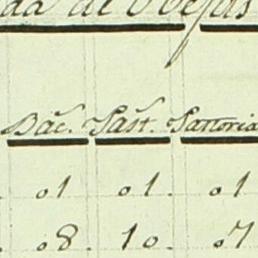 da de Ovejas
Bác. Past. Pastoria
01 01. 01
08. 10. 07